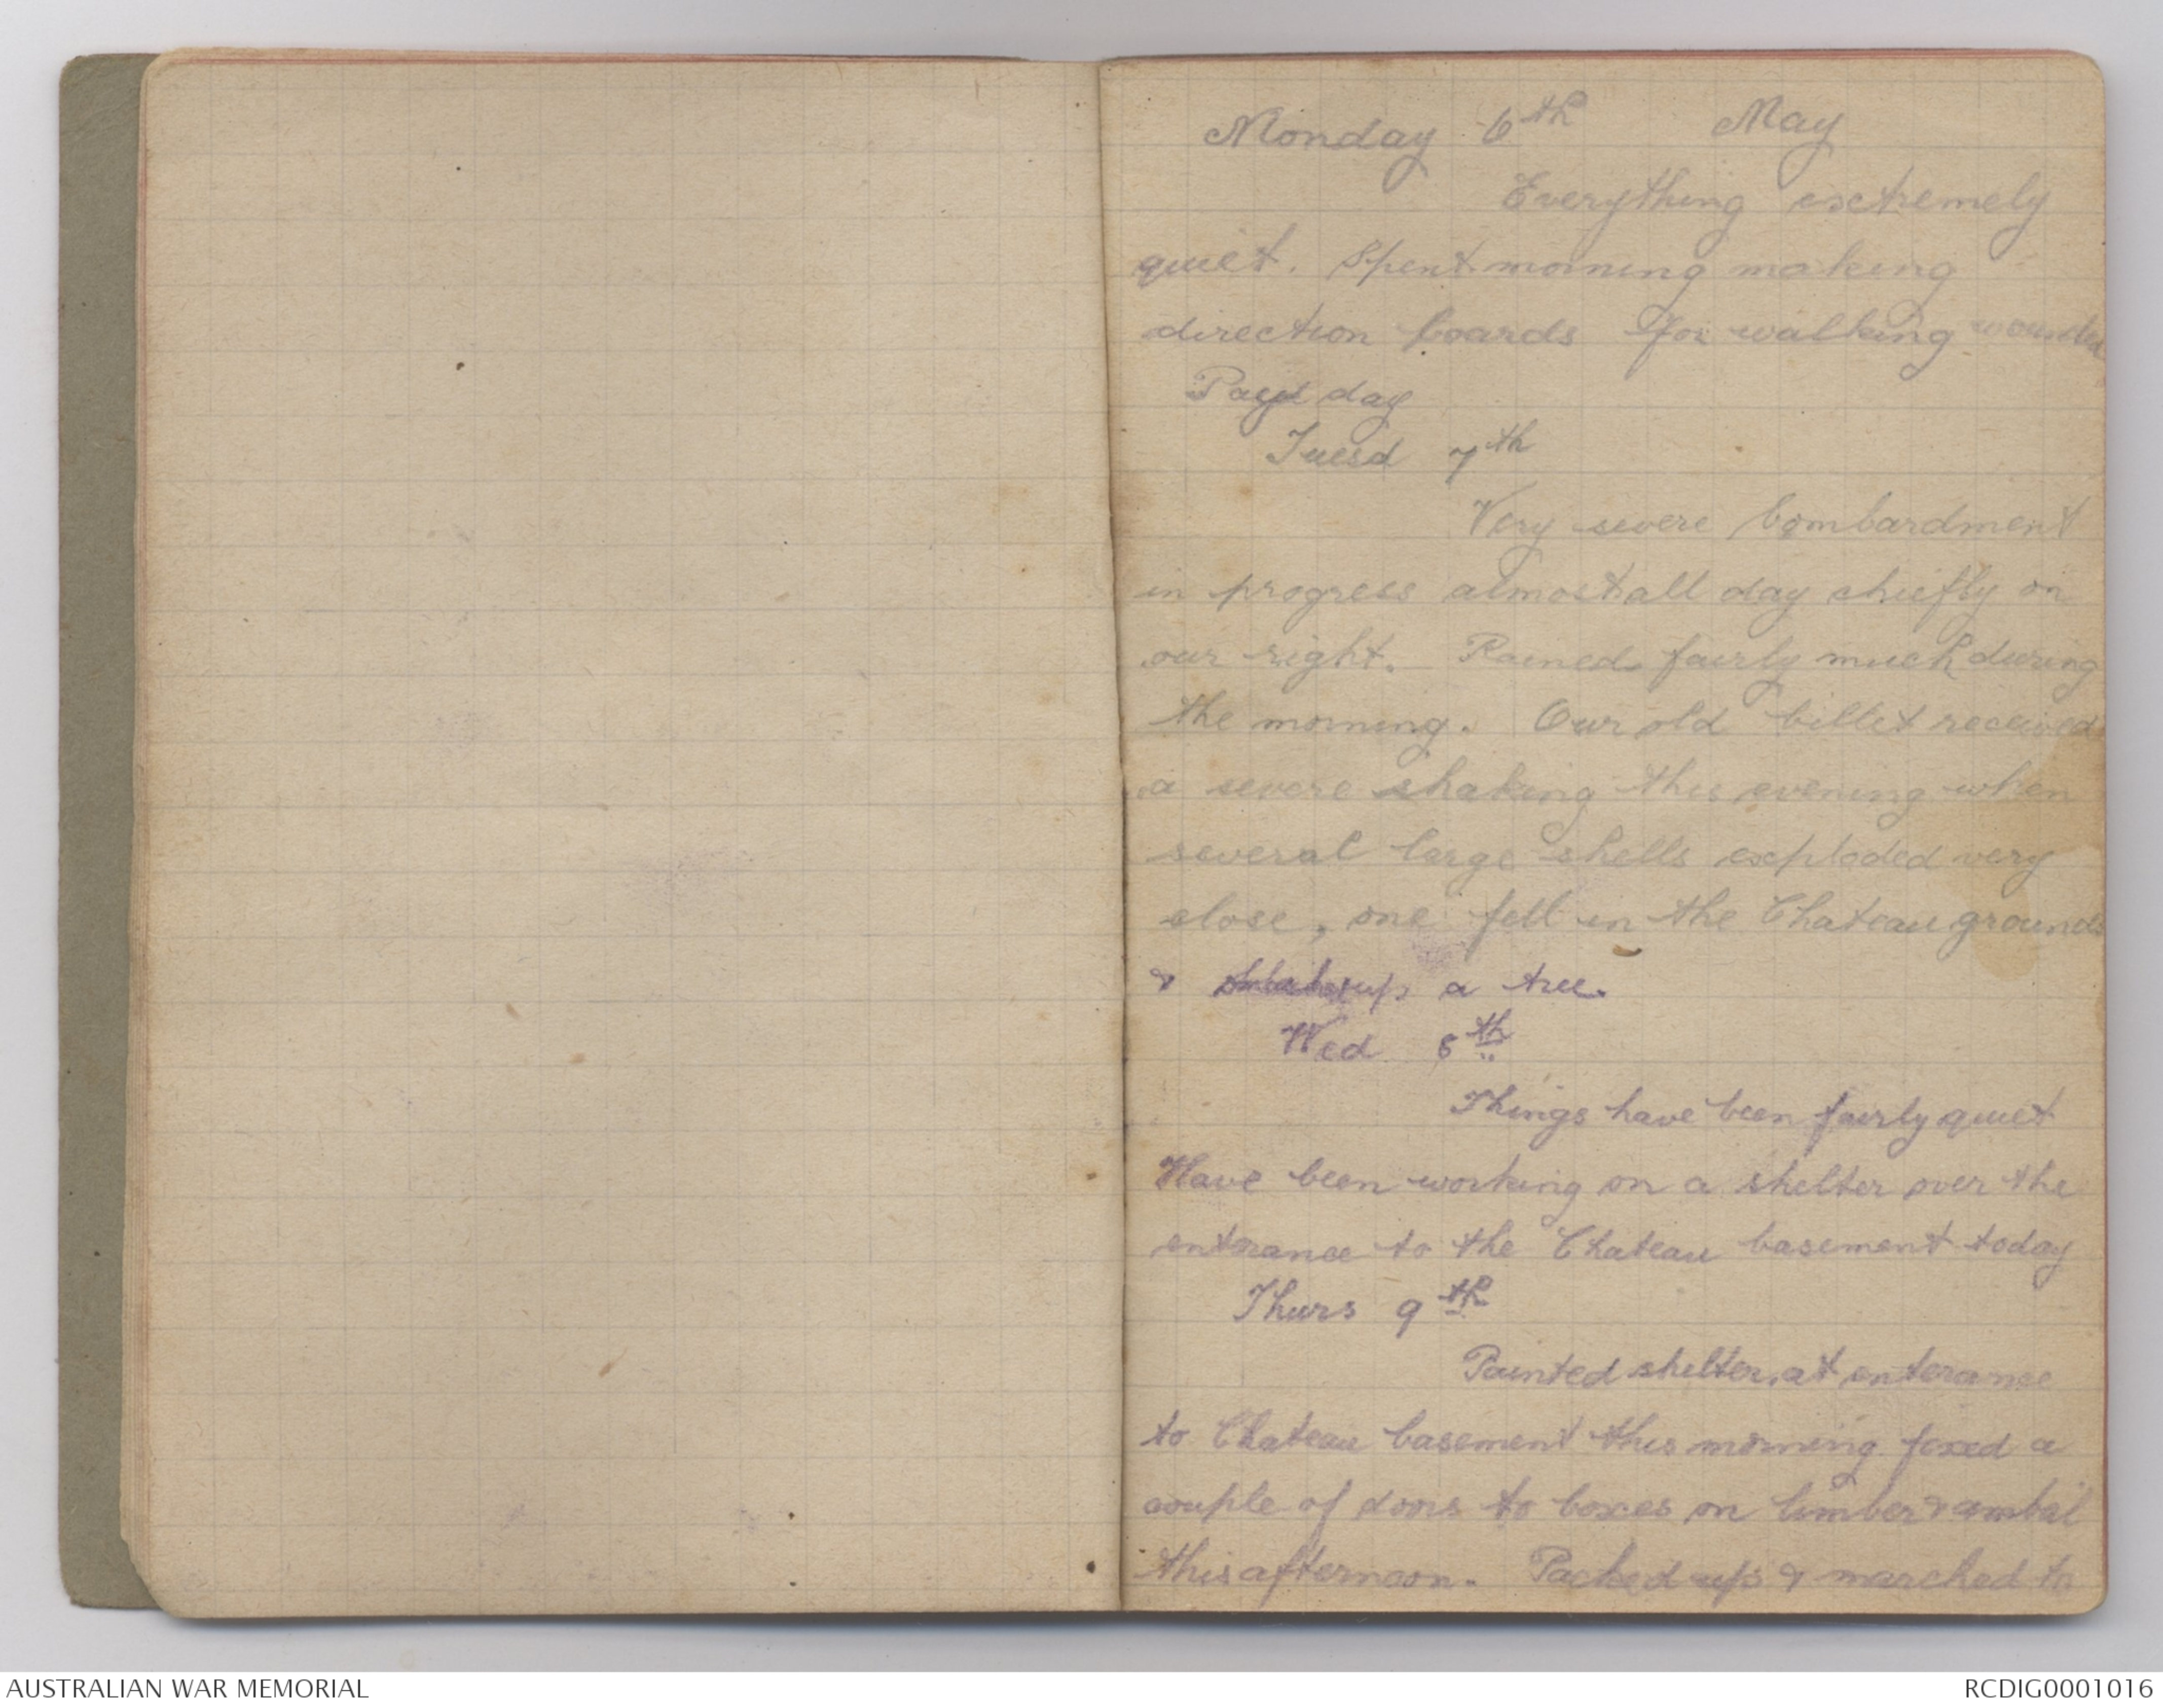 Monday 6th May
Everything extremely
quiet. Spent morning making
direction boards for walking wounded
Pay day
Tuesd 7th
Very severe bombardment
in progress almost all day chiefly on
our right. Rained fairly much during
the morning. Our old billet received
a severe shaking this evening when
several large shells exploded very
close, one fell in the Chateau grounds
& up a tree.
Wed 8th
Things have been fairly quiet
Have been working on a shelter over the
enterance to the Chateau basement today
Thurs 9th
Painted shelter at enterance
to Chateau basement this morning foxed a
couple of doors to boxes on limber &
this afternoon. Packed up & marched to
AUSTRALIAN WAR MEMORIAL
RCDIG0001016